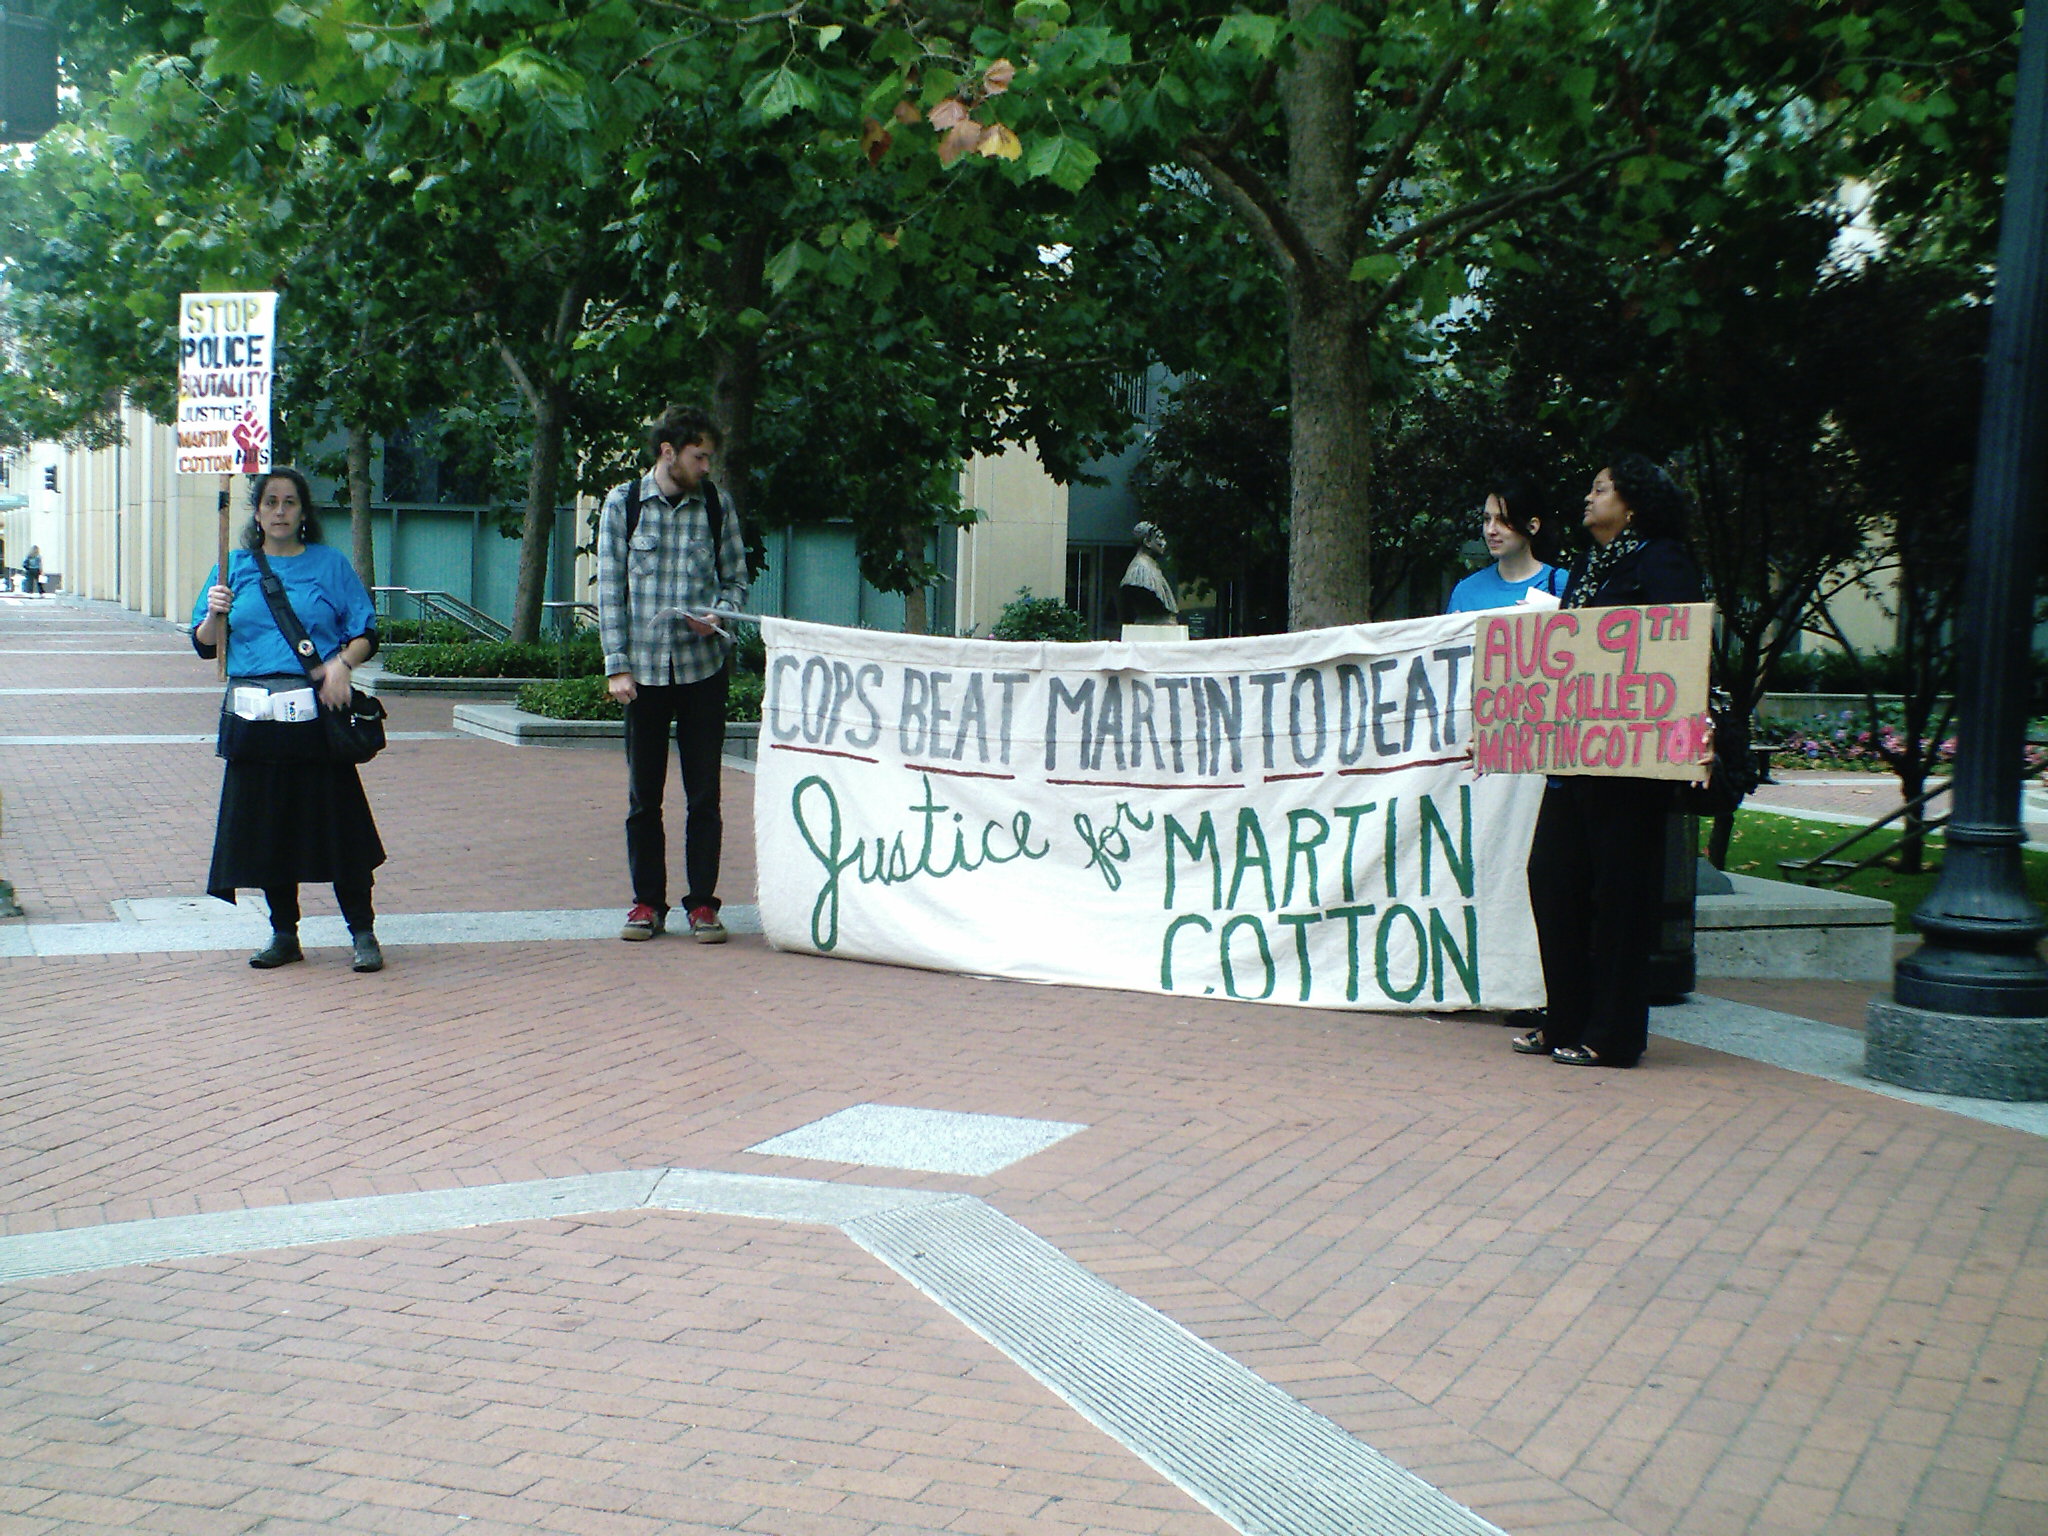 STOP
POLICE
BRUTALITY
JUSTICE
MARTIN
COTTON
COPS BEAT MARTIN TO DEAT
Justice for MARTIN
COTTON
AUG 9TH
COPS KILLED
MARTIN COTTON